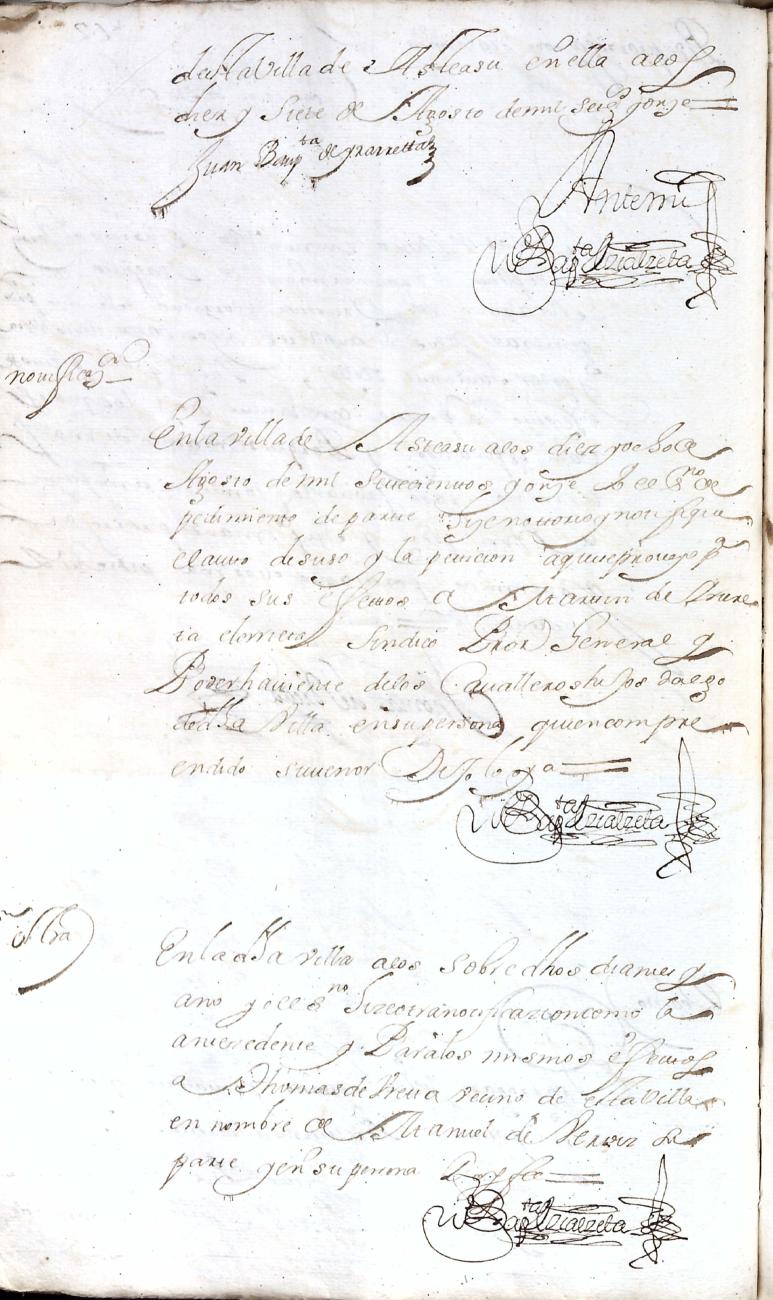 desta Villa de Asteasu en ella a los
diez y siete de Agosto de mil setes y onze
Juan Bapta de Yrarreta
Antemi
Bapta de Lizalzeta
notificaon
En la villa de Asteasu a los diez y ocho de
Agosto de mil setecientos y onze Yo el sno de
pedimiento de parte hize notorio y notifique
el auto de suso y la peticion a que se proveyo pa
todos sus effectos a Martin de
ta el menor sindico Pror General y
Poderhaviente de los Cavalleros hijos dalgo
de dha Villa en su persona quien compre
endido su tenor Dijo la oya
Bapta de Lizalzeta
otra
En la dha villa a los sobre dhos dia mes y
año yo el sno hize otra notificazion como la
antecedente y Para los mismos effectos
a Thomas de Ureta vecino de esta Villa
en nombre de Manuel de su
parte y en su persona doy fee
Bapta de Lizalzeta